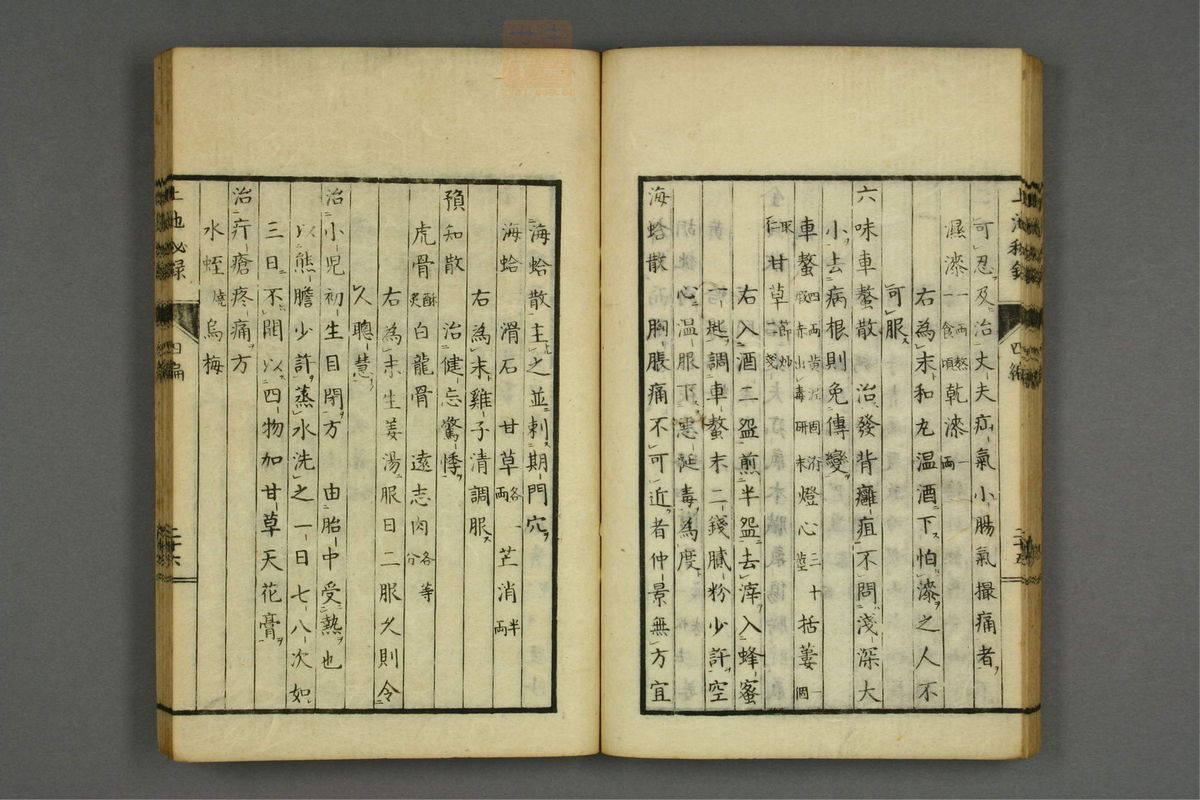 可忍及治丈夫疝氣小腸氣撮痛者
濕漆一兩熬一食頃乾漆一兩
右為末和丸温酒下怕漆之人不
可服
六味車螯散 治發背癰疽不問淺深大
小去病根則免傳變
車螯四兩黃泥固濟煅赤出毒研末燈心三十莖栝蔞一箇
取仁甘草節炒二錢
右入酒二盌煎半盌去滓入蜂蜜
一匙調車螯末二錢膩粉少許空
心温服下惡涎毒為度
海蛤散 胸脹痛不可近者仲景無方宜
海蛤散主之並刺期門穴
海蛤 滑石 甘草各一兩 芒消半兩
右為末雞子清調服
預知散 治健忘驚悸
虎骨酥炙白龍骨 遠志肉各等分
右為末生姜湯服日二服久則令
人聰慧
治小兒初生目閉方 由胎中受熱也
以熊膽少許蒸水洗之一日七八次如
三日不開以四物加甘草天花膏
治疔瘡疼痛方
水蛭燒烏梅
四編
二十五
上池秘録
四編
二十六